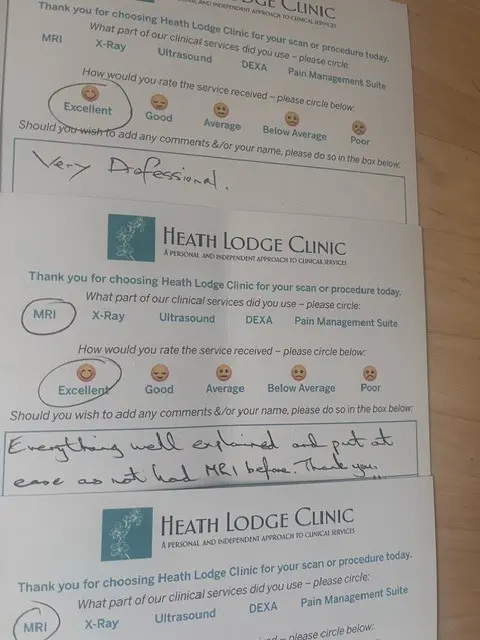 HEATH LODGE CLINIC
A PERSONAL AND INDEPENDENT APPROACH TO CLINICAL SERVICES
Thank you for choosing Heath Lodge Clinic for your scan or procedure today.
What part of our clinical services did you use – please circle:
MRI X-Ray Ultrasound DEXA Pain Management Suite
How would you rate the service received – please circle below:
Excellent Good Average Below Average Poor
Should you wish to add any comments &/or your name, please do so in the box below:
Very Professional.
HEATH LODGE CLINIC
A PERSONAL AND INDEPENDENT APPROACH TO CLINICAL SERVICES
Thank you for choosing Heath Lodge Clinic for your scan or procedure today.
What part of our clinical services did you use – please circle:
MRI X-Ray Ultrasound DEXA Pain Management Suite
How would you rate the service received – please circle below:
Excellent Good Average Below Average Poor
Should you wish to add any comments &/or your name, please do so in the box below:
Everything well explained and put at
ease as not had MRI before. Thank you.
HEATH LODGE CLINIC
A PERSONAL AND INDEPENDENT APPROACH TO CLINICAL SERVICES
Thank you for choosing Heath Lodge Clinic for your scan or procedure today.
What part of our clinical services did you use – please circle:
MRI X-Ray Ultrasound DEXA Pain Management Suite
please circle below: